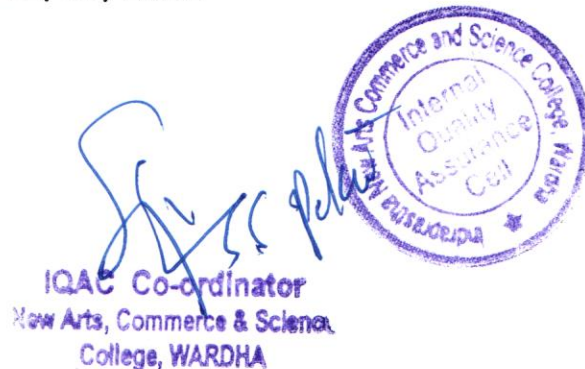 Indraprastha New Arts Commerce and Science College, Wardha
Internal
Quality
Assurance
Cell
IQAC Co-ordinator
New Arts, Commerce & Science
College, WARDHA